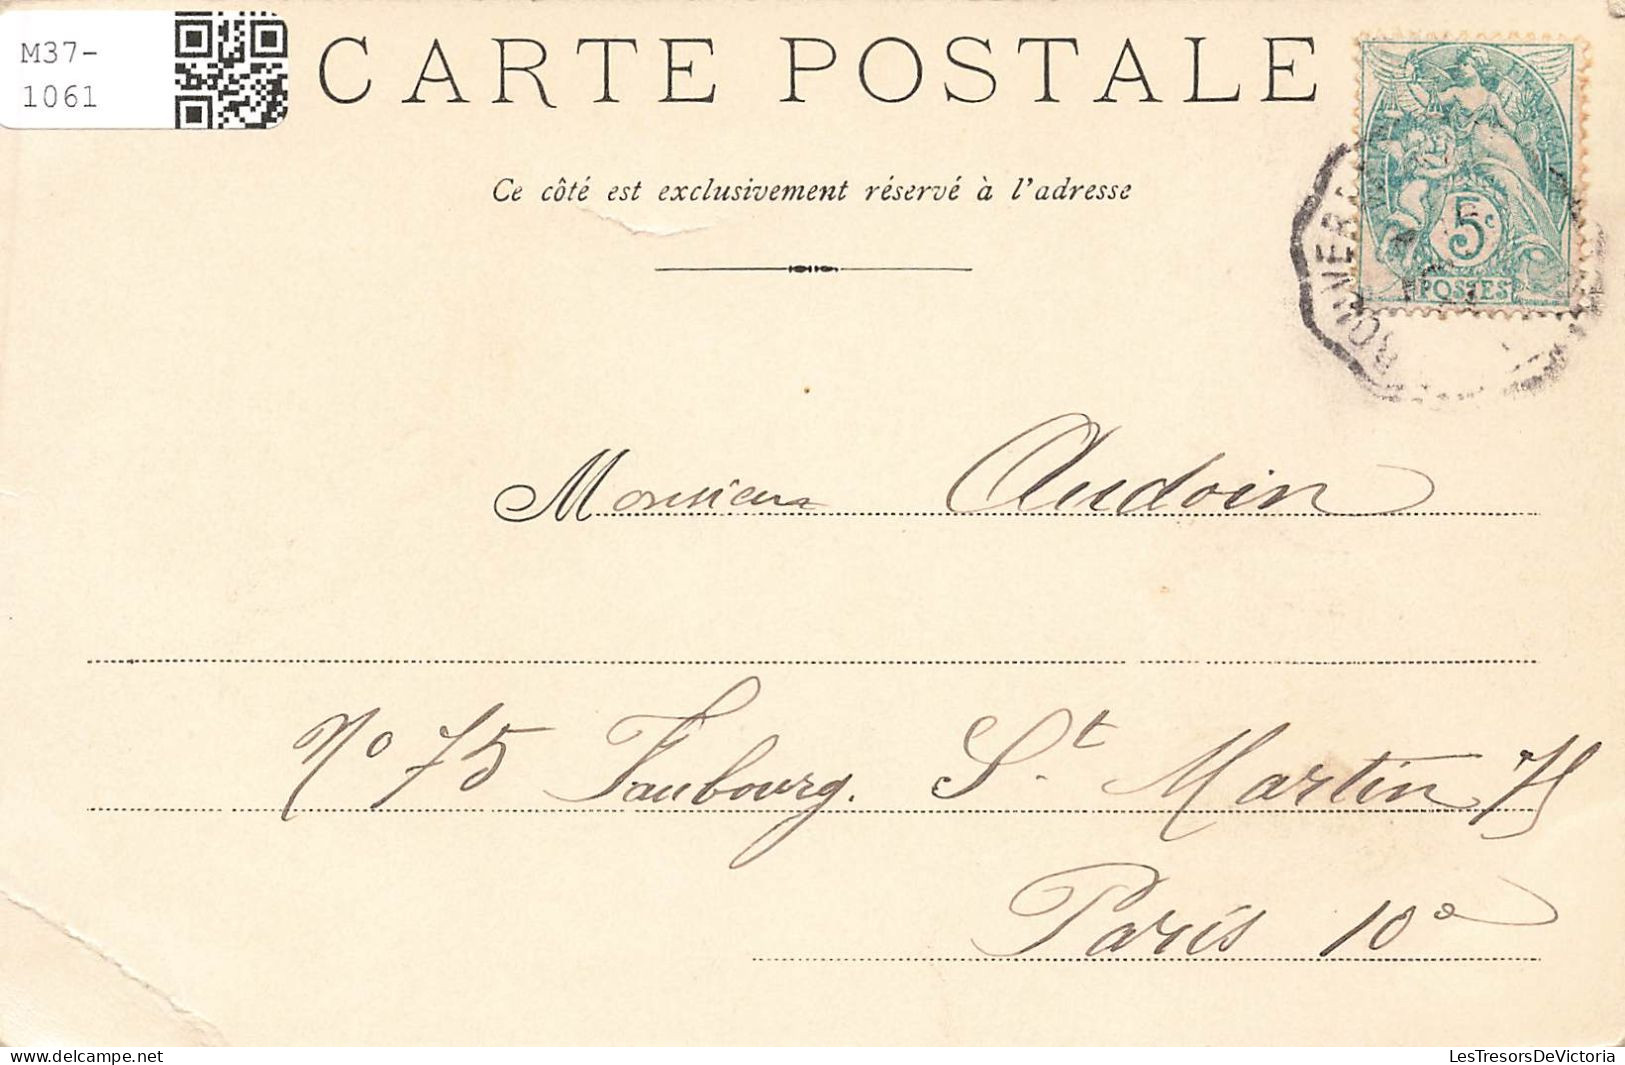 M37-
1061
CARTE POSTALE
Ce côté est exclusivement réservé à l'adresse
5c
POSTES
Monsieur Audoin
No 75 Faubourg. St Martin
Paris 10e
delcampe.net
LesTresorsDeVictoria